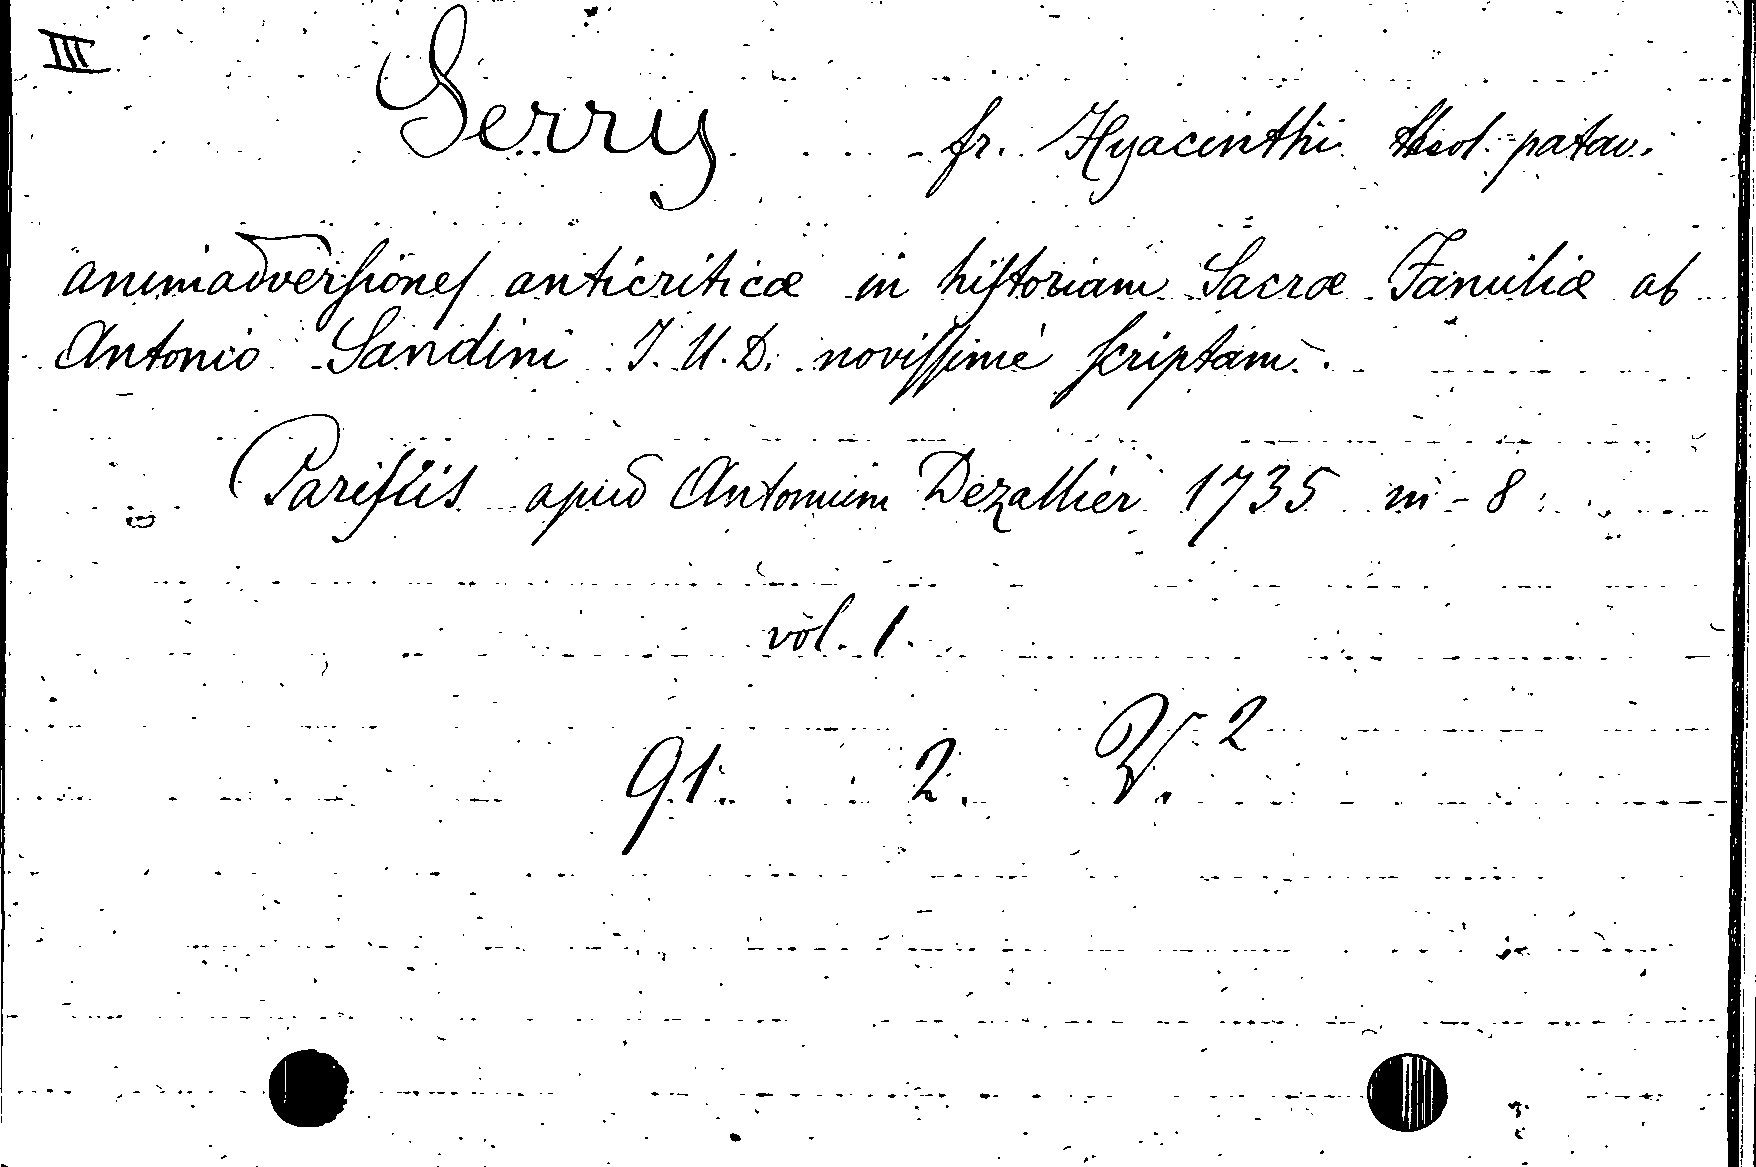 III
Serry fr. Hyacinthi theol. patav.
animadverſioneſ anticriticæ in hiſtoriam Sacræ Familiæ ab
Antonio Sandini J. U. D. noviſſimè ſcriptam.
Pariſiis apud Antonium Dezallier 1735 in-8
vol. 1.
91. 2. V.2